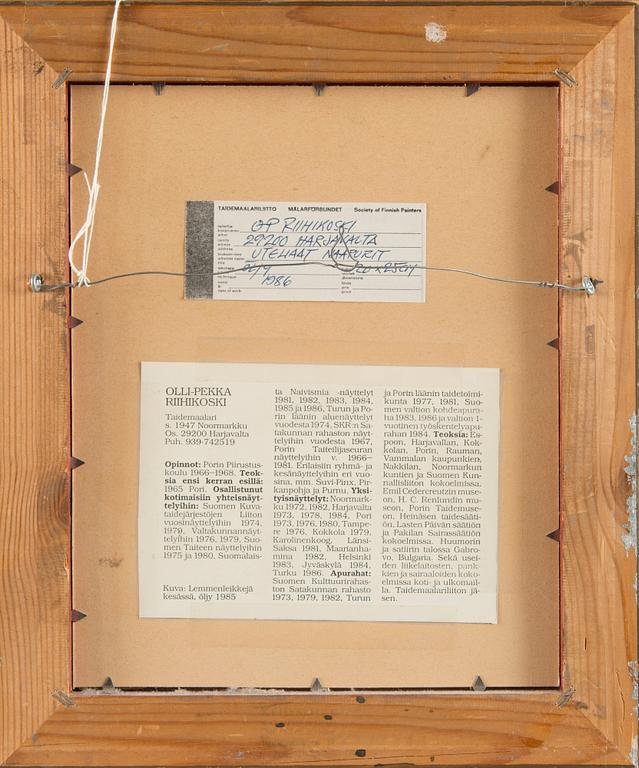 TAIDEMAALARILIITTO MÅLARFÖRBUNDET Society of Finnish Painters
OP RIIHIKOSKI
29200 HARJAVALTA
UTELIAAT NAAPURIT
ÖLJY 20 x 25 CM
1986
OLLI-PEKKA
RIIHIKOSKI
Taidemaalari
s. 1947 Noormarkku
Os. 29200 Harjavalta
Puh. 939-742519
Opinnot: Porin Piirustus-
koulu 1966–1968. Teok-
sia ensi kerran esillä:
1965 Pori. Osallistunut
kotimaisiin yhteisnäyt-
telyihin: Suomen Kuva-
taidejärjestöjen Liiton
vuosinäyttelyihin 1974,
1979, Valtakunnannäyt-
telyihin 1976, 1979, Suo-
men Taiteen näyttelyihin
1975 ja 1980, Suomalais-
Kuva: Lemmenleikkejä
kesässä, öljy 1985
ta Naivismia -näyttelyt
1981, 1982, 1983, 1984,
1985 ja 1986, Turun ja Po-
rin läänin aluenäyttelyt
vuodesta 1974, SKR:n Sa-
takunnan rahaston näyt-
telyihin vuodesta 1967,
Porin Taiteilijaseuran
näyttelyihin v. 1966–
1981. Erilaisiin ryhmä- ja
kesänäyttelyihin eri vuo-
sina, mm. Suvi-Pinx, Pir-
kanpohja ja Purnu. Yksi-
tyisnäyttelyt: Noormark-
ku 1972, 1982, Harjavalta
1973, 1978, 1984, Pori
1973, 1976, 1980, Tampe-
re 1976, Kokkola 1979,
Karolinenkoog, Länsi-
Saksa 1981, Maarianha-
mina 1982, Helsinki
1983, Jyväskylä 1984,
Turku 1986. Apurahat:
Suomen Kulttuurirahas-
ton Satakunnan rahasto
1973, 1979, 1982, Turun
ja Porin läänin taidetoimi-
kunta 1977, 1981, Suo-
men valtion kohdeapura-
ha 1983, 1986 ja valtion 1-
vuotinen työskentelyapu-
rahan 1984. Teoksia: Es-
poon, Harjavallan, Kok-
kolan, Porin, Rauman,
Vammalan kaupunkien,
Nakkilan, Noormarkun
kuntien ja Suomen Kun-
nallisliiton kokoelmissa.
Emil Cedercreutzin muse-
on, H. C. Renlundin mu-
seon, Porin Taidemuse-
on, Heinäsen taidesääti-
ön, Lasten Päivän säätiön
ja Pakilan Sairassäätiön
kokoelmissa. Huumorin
ja satiirin talossa Gabro-
vo, Bulgaria. Sekä usei-
den liikelaitosten, pank-
kien ja sairaaloiden koko-
elmissa koti- ja ulkomail-
la. Taidemaalariliiton jä-
sen.